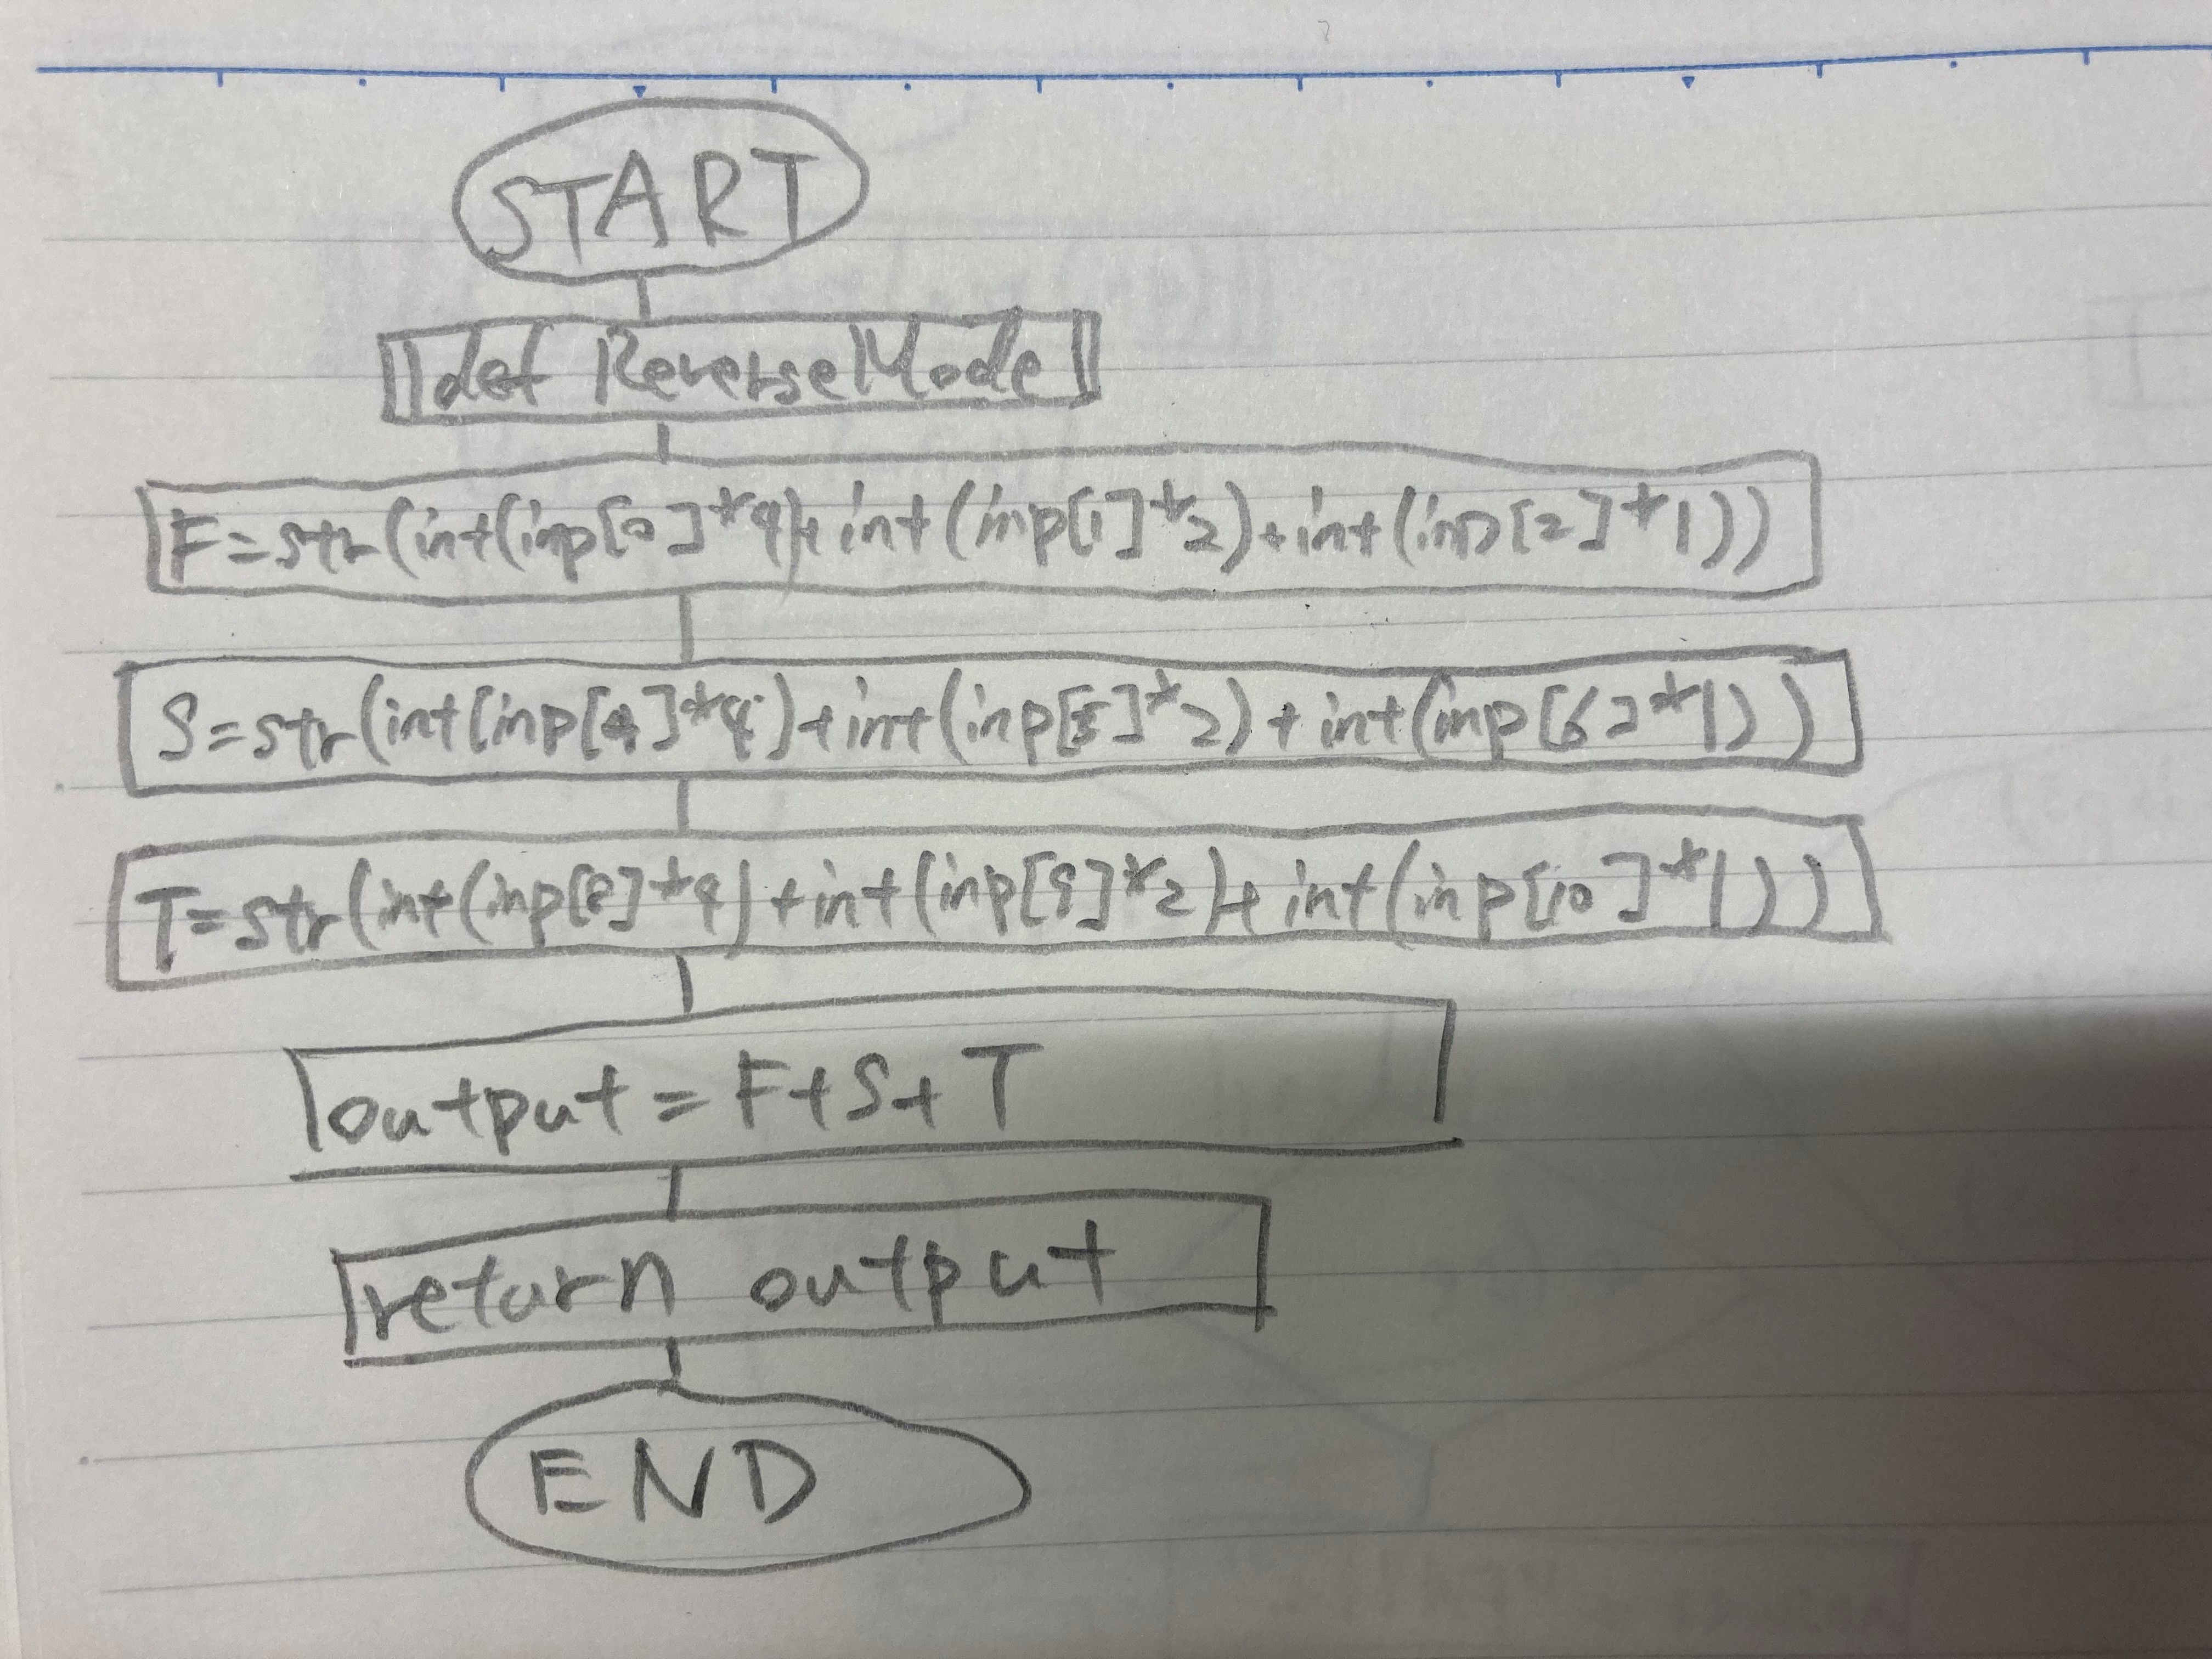 START
def ReverseMode
F=str(int(inp[0]*4)+int(inp[1]*2)+int(inp[2]*1))
S=str(int(inp[4]*4)+int(inp[5]*2)+int(inp[6]*1))
T=str(int(inp[8]*4)+int(inp[9]*2)+int(inp[10]*1))
output=F+S+T
return output
END